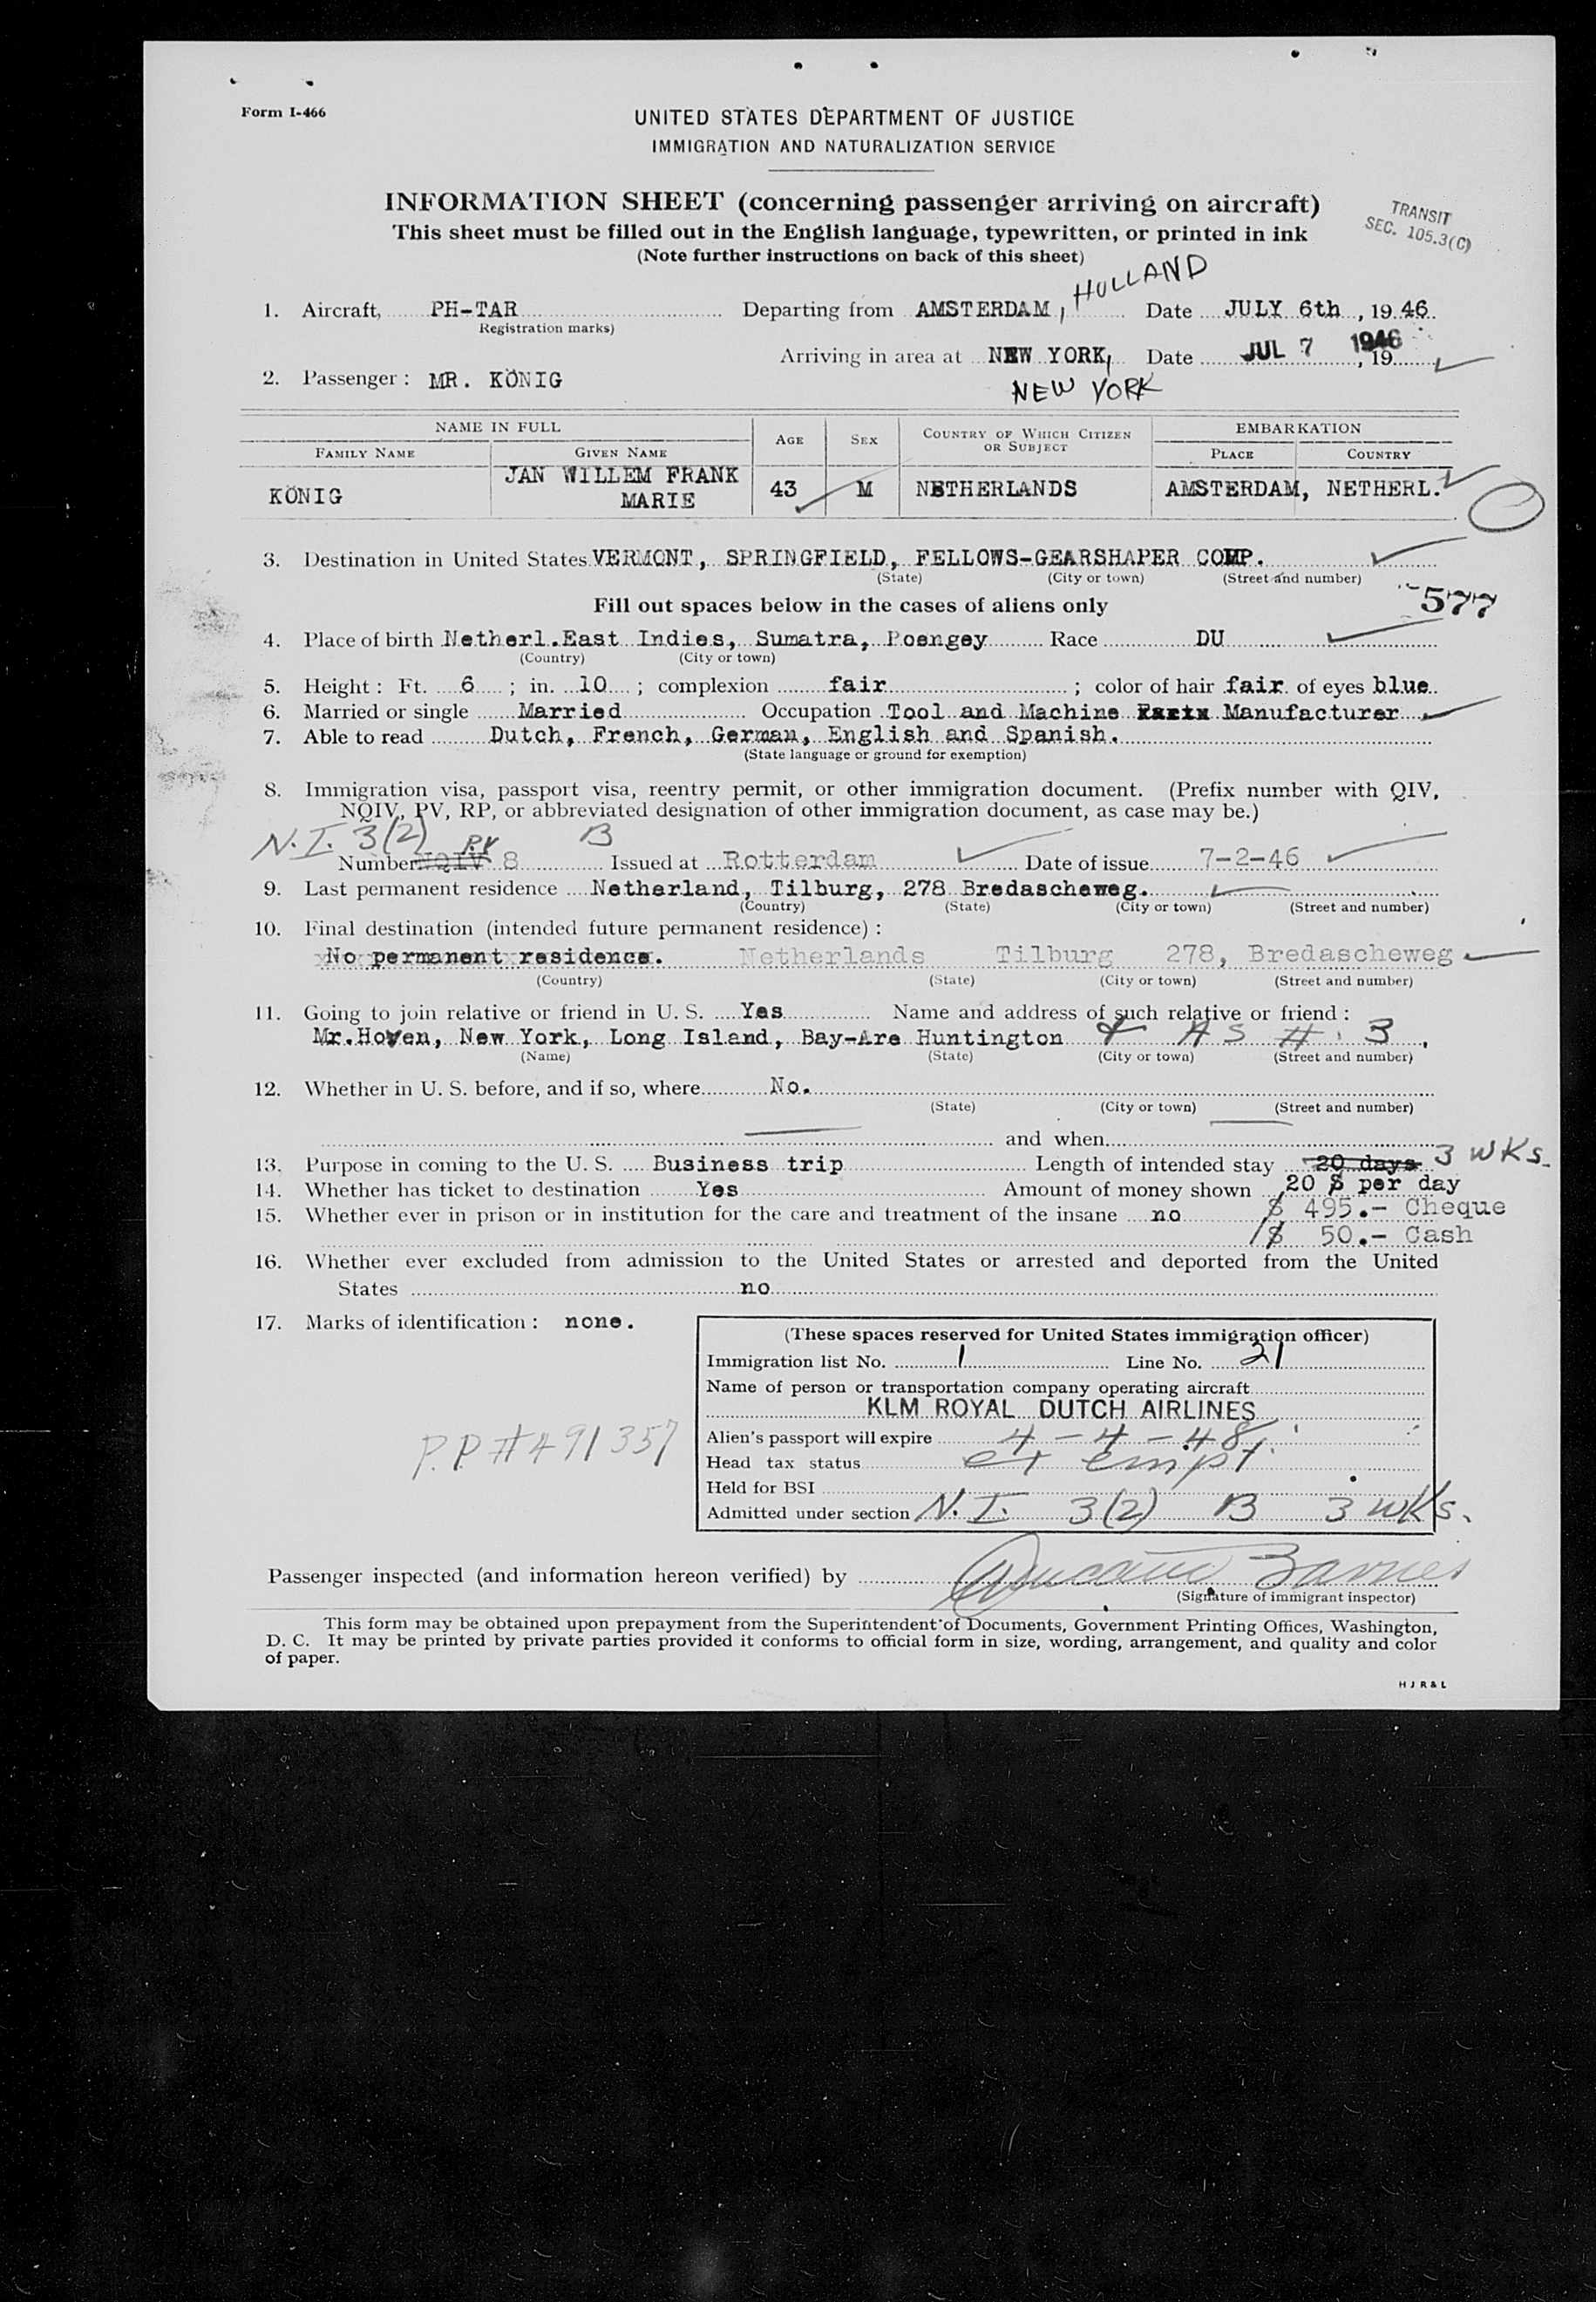 Form I-466
UNITED STATES DEPARTMENT OF JUSTICE
IMMIGRATION AND NATURALIZATION SERVICE
INFORMATION SHEET (concerning passenger arriving on aircraft)
This sheet must be filled out in the English language, typewritten, or printed in ink
(Note further instructions on back of this sheet)
TRANSIT
SEC. 105.3(C)
HOLLAND
1. Aircraft, PH-TAR Departing from AMSTERDAM, Date JULY 6th, 1946
Registration marks)
Arriving in area at NEW YORK, Date JUL 7 1946, 19
2. Passenger : MR. KÖNIG
NEW YORK
NAME IN FULL AGE SEX COUNTRY OF WHICH CITIZEN OR SUBJECT EMBARKATION
FAMILY NAME GIVEN NAME PLACE COUNTRY
KÖNIG JAN WILLEM FRANK MARIE 43 M NETHERLANDS AMSTERDAM, NETHERL.
3. Destination in United States VERMONT, SPRINGFIELD, FELLOWS-GEARSHAPER COMP.
(State) (City or town) (Street and number)
Fill out spaces below in the cases of aliens only
577
4. Place of birth Netherl.East Indies, Sumatra, Poengey Race DU
(Country) (City or town)
5. Height : Ft. 6 ; in. 10 ; complexion fair ; color of hair fair of eyes blue
6. Married or single Married Occupation Tool and Machine Manufacturer
7. Able to read Dutch, French, German, English and Spanish.
(State language or ground for exemption)
8. Immigration visa, passport visa, reentry permit, or other immigration document. (Prefix number with QIV,
NQIV, PV, RP, or abbreviated designation of other immigration document, as case may be.)
N.I. 3(2) PV B
Number NQIV 8 Issued at Rotterdam Date of issue 7-2-46
9. Last permanent residence Netherland, Tilburg, 278 Bredascheweg.
(Country) (State) (City or town) (Street and number)
10. Final destination (intended future permanent residence) :
No permanent residence. Netherlands Tilburg 278, Bredascheweg
(Country) (State) (City or town) (Street and number)
11. Going to join relative or friend in U. S. Yes Name and address of such relative or friend :
Mr.Hoven, New York, Long Island, Bay-Are Huntington & AS # 3
(Name) (State) (City or town) (Street and number)
12. Whether in U. S. before, and if so, where No.
(State) (City or town) (Street and number)
and when
13. Purpose in coming to the U. S. Business trip Length of intended stay 20 days 3 WKS.
14. Whether has ticket to destination Yes Amount of money shown 20 $ per day
15. Whether ever in prison or in institution for the care and treatment of the insane no $ 495.- Cheque
$ 50.- Cash
16. Whether ever excluded from admission to the United States or arrested and deported from the United
States no
17. Marks of identification : none.
(These spaces reserved for United States immigration officer)
Immigration list No. 1 Line No. 21
Name of person or transportation company operating aircraft
KLM ROYAL DUTCH AIRLINES
P.P.# 491357
Alien's passport will expire 4-4-48
Head tax status exempt
Held for BSI
Admitted under section N.I. 3(2) B 3 WKS.
Passenger inspected (and information hereon verified) by
(Signature of immigrant inspector)
This form may be obtained upon prepayment from the Superintendent of Documents, Government Printing Offices, Washington,
D. C. It may be printed by private parties provided it conforms to official form in size, wording, arrangement, and quality and color
of paper.
H J R & L